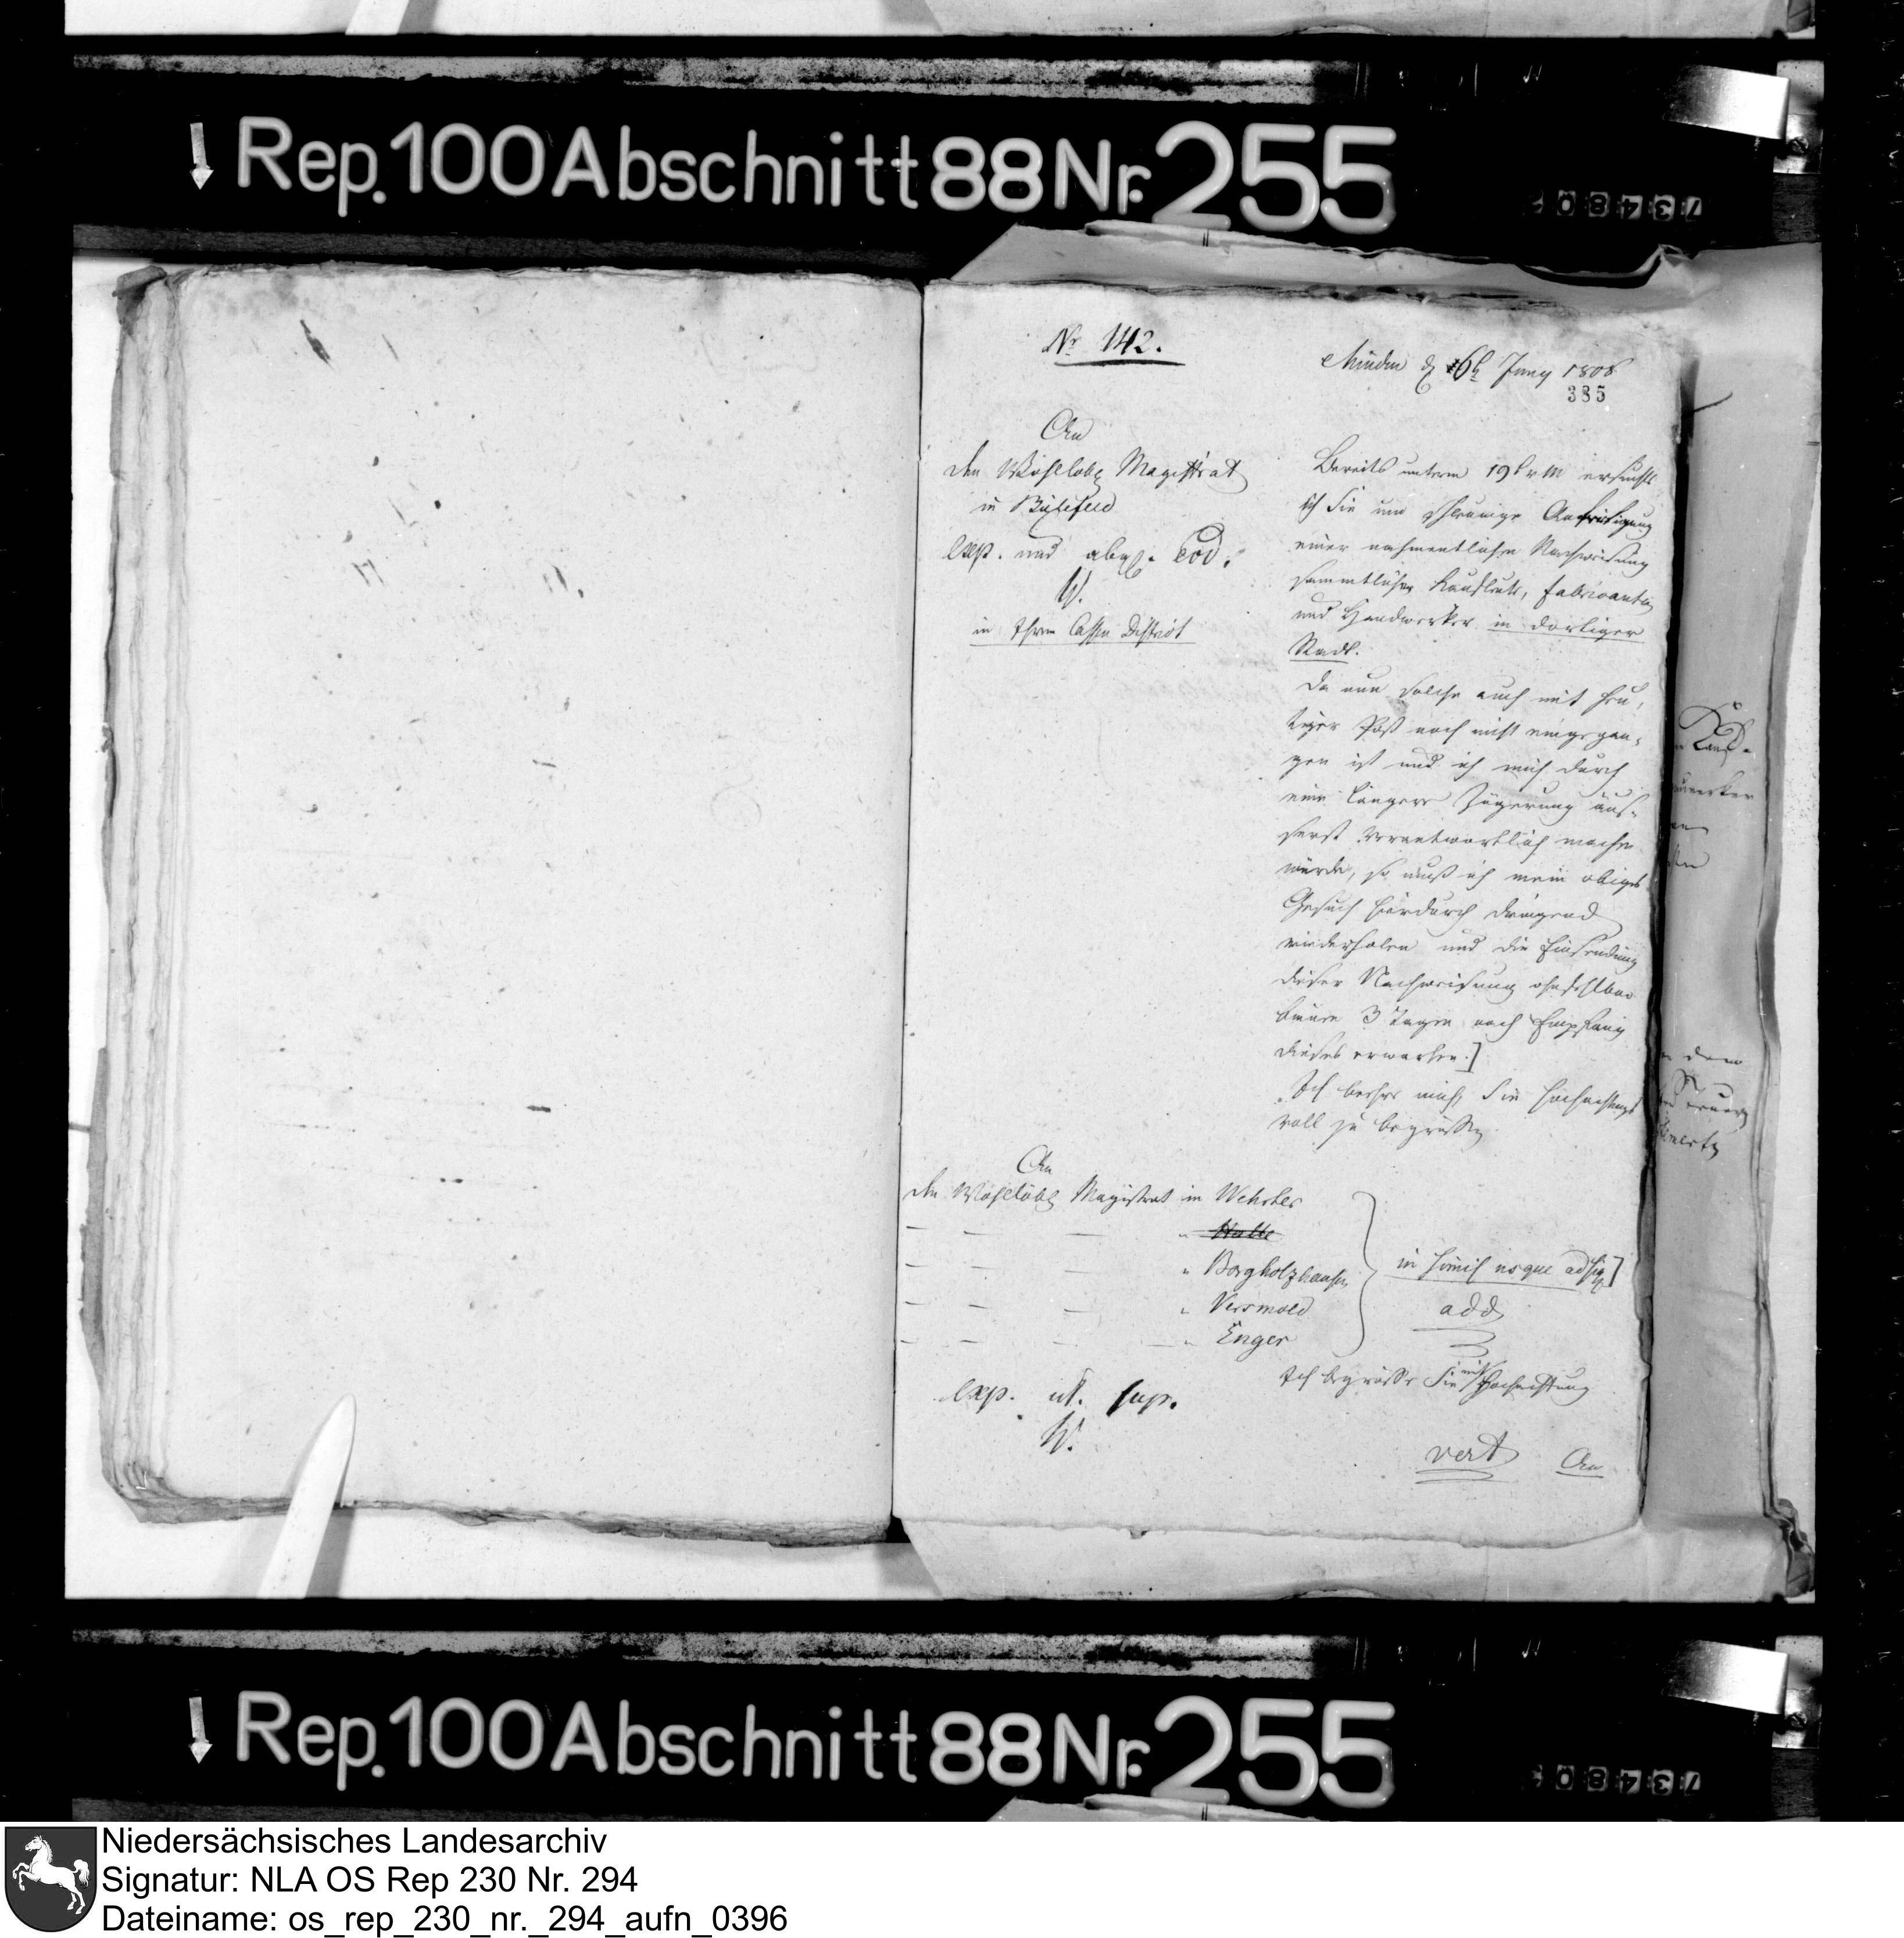 Rep. 100 Abschnitt 88 Nr. 255
Nr 142.
Minden d 6t Juny 1808
385
An
den Wohllöbl Magistrat
in Bielefeld
exp. und abges. eod.
W.
in Ihrem Cassen District
Bereits unterm 19t v M ersuchte
ich Sie um schleunige Anfertigung
einer nahmentlichen Nachweisung
sämmtlicher Kaufleute, Fabricanten
und Handwerker in dortiger
Stadt.
Da nun solche auch mit heu,
tiger Post noch nicht eingegan,
gen ist und ich mich durch
eine längere Zögerung äus,
serst verantwortlich machen
würde, so muß ich mein obiges
Gesuch hierdurch dringend
wiederholen und die Einsendung
dieser Nachweisung ohnfehlbar
binnen 3 Tagen nach Empfang
dieses erwarten.]
Ich beehre mich, Sie hochachtungs
voll zu begrüßen
An
den Wohllöbl Magistrat in Wehrter
— — — " Halle
— — — " Borgholzhausen
— — — " Versmold
— — — " Enger
in simili usque ad sig]
add
Ich begrüsse Sie mit Hochachtung
exp. ut. sup.
W.
vert
An
Rep. 100 Abschnitt 88 Nr. 255
Niedersächsisches Landesarchiv
Signatur: NLA OS Rep 230 Nr. 294
Dateiname: os_rep_230_nr._294_aufn_0396